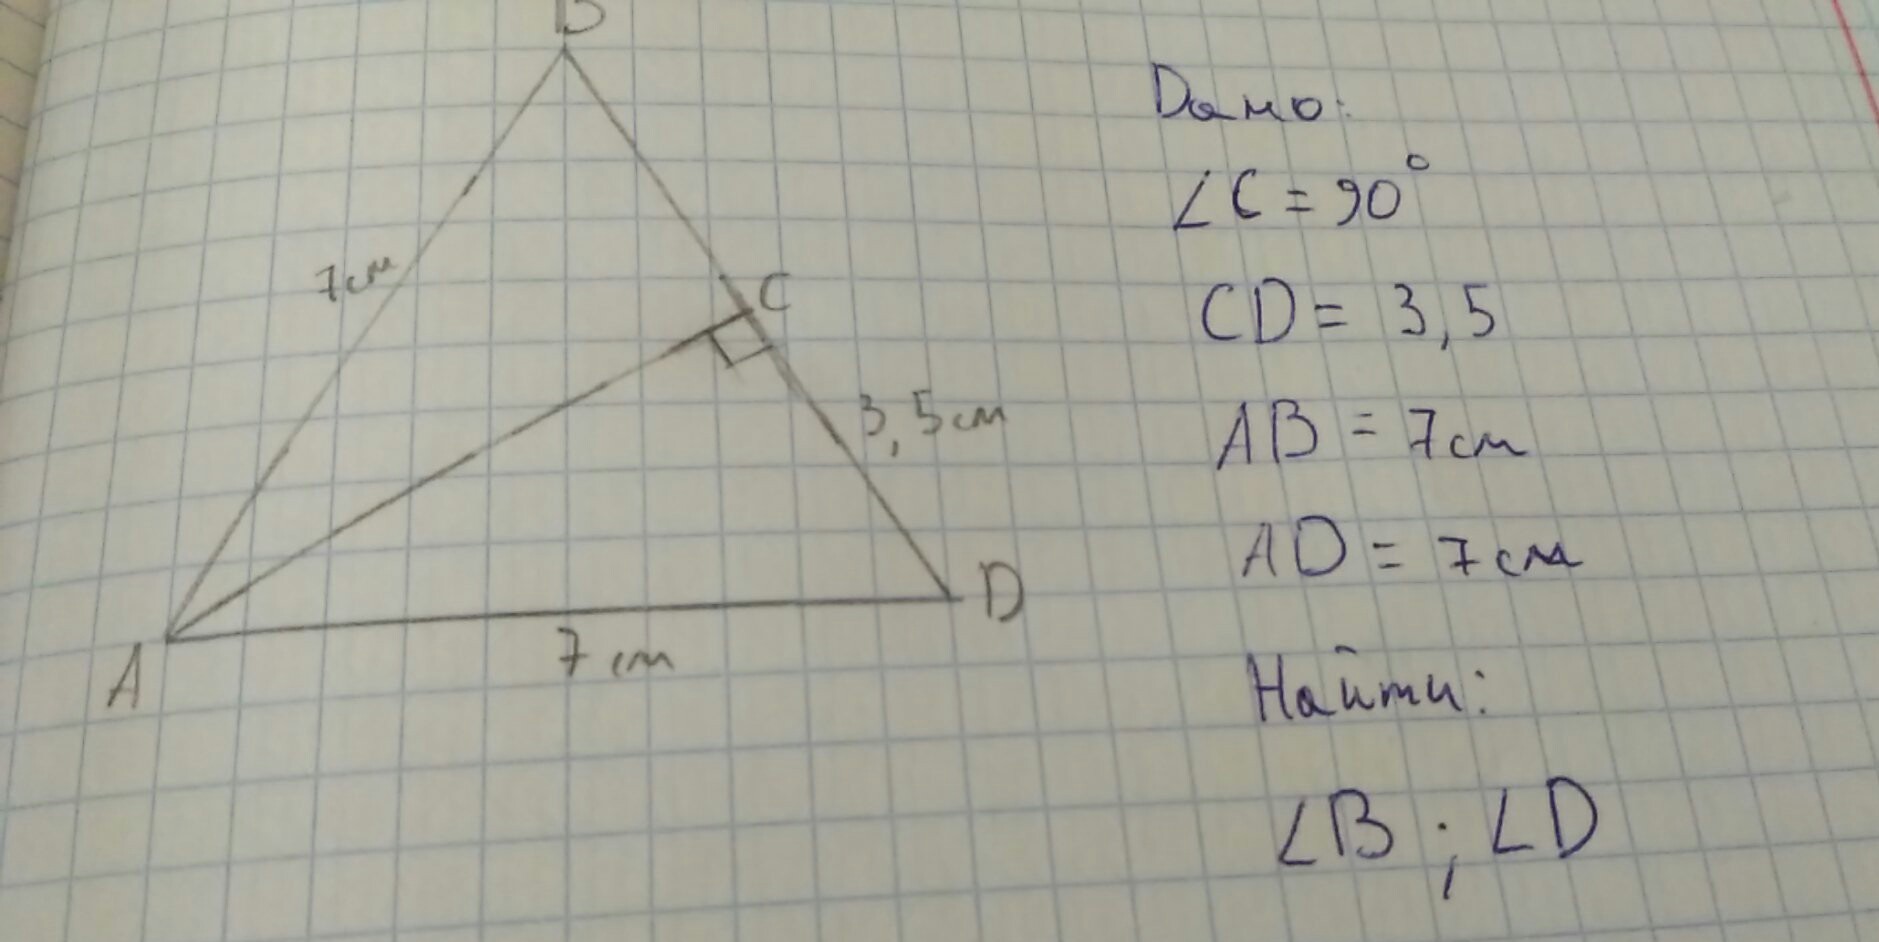 B
7см
C
3,5см
7см
A
D
Дано:
∠C = 90°
CD = 3,5
AB = 7см
AD = 7см
Найти:
∠B ; ∠D